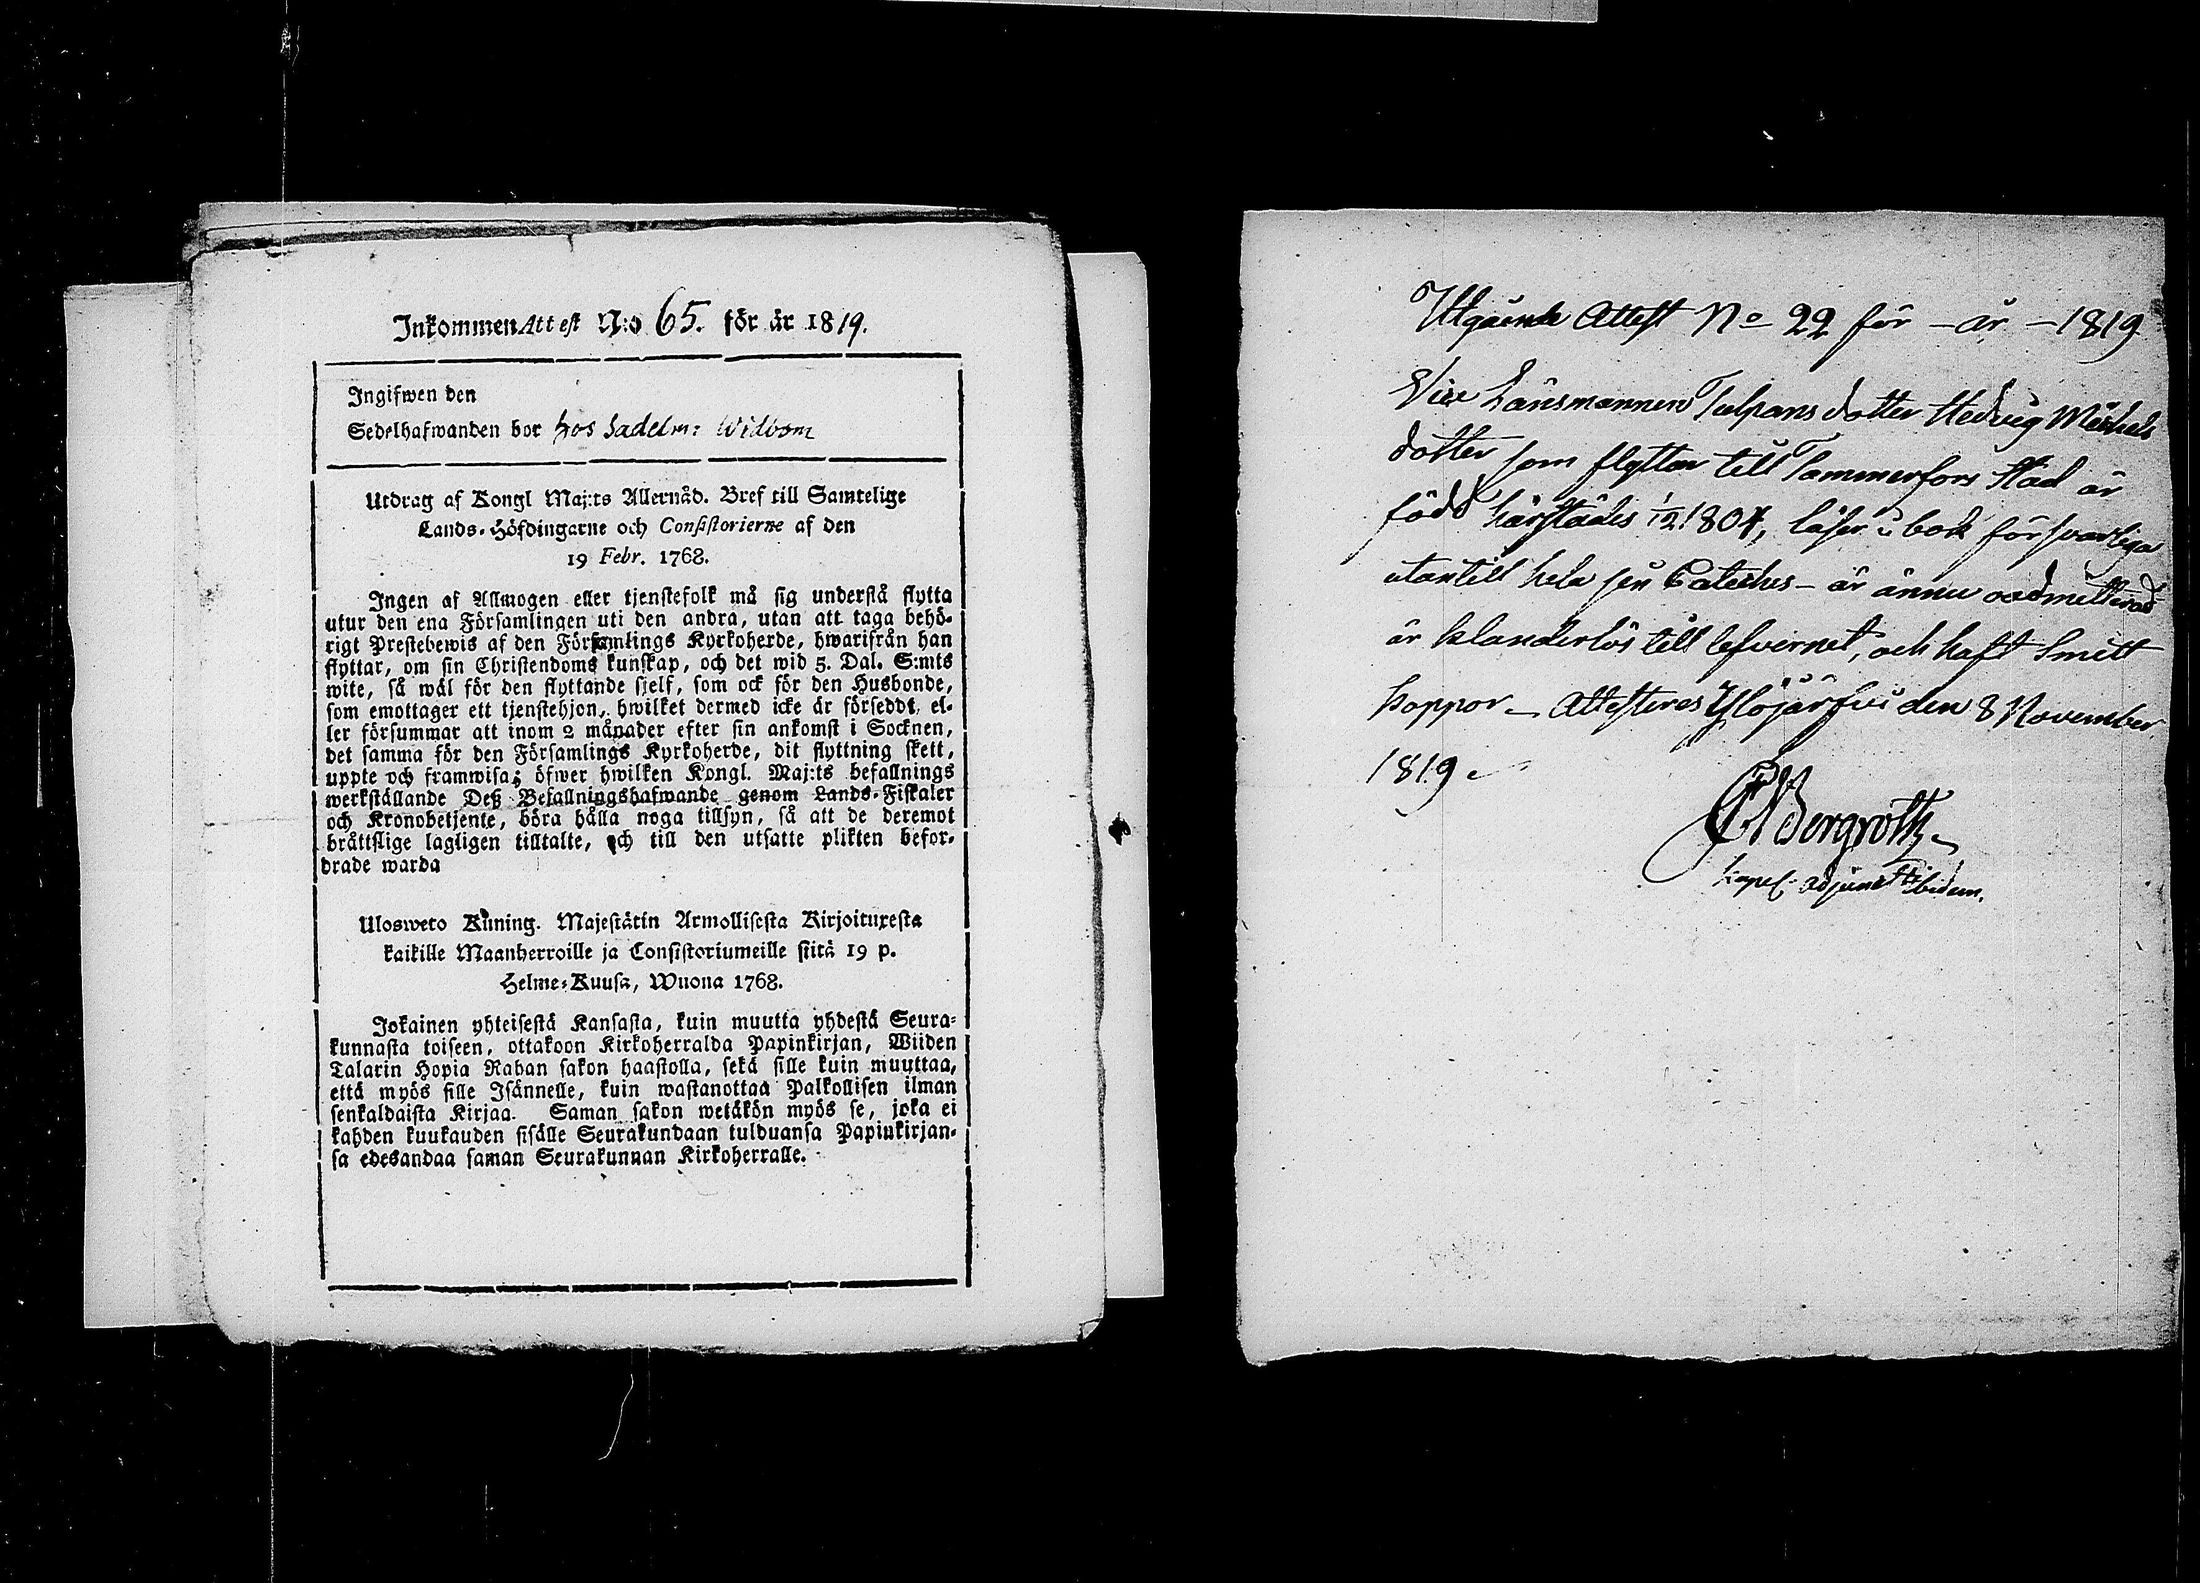 Inkommen Attest N:o 65. för år 1819.
Ingifwen den
Sedelhafwanden bor hos Sadelm: Widbom
Utdrag af Kongl Maj:ts Allernåd. Bref till Samtelige
Lands-Höfdingarne och Consistorierne af den
19 Febr. 1768.
Ingen af Allmogen eller tjenstefolk må sig understå flytta
utur den ena Församlingen uti den andra, utan att taga behö-
rigt Prestebewis af den Församlings Kyrkoherde, hwarifrån han
flyttar, om sin Christendoms kunskap, och det wid 5. Dal. S:mts
wite, så wäl för den flyttande sjelf, som ock för den Husbonde,
som emottager ett tjenstehjon, hwilket dermed icke är försedt, el-
ler försummar att inom 2 månader efter sin ankomst i Socknen,
det samma för den Församlings Kyrkoherde, dit flyttning skett,
uppte och framwisa; öfwer hwilken Kongl. Maj:ts befallnings
werkställande Deß Befallningshafwande genom Lands-Fiskaler
och Kronobetjente, böra hålla noga tillsyn, så att de deremot
bråttslige lagligen tilltalte, och till den utsatte plikten befor-
drade warda
Ulosweto Kuning. Majestätin Armollisesta Kirjoituxesta
kaikille Maanherroille ja Consistoriumeille siitä 19 p.
Helme-Kuusa, Wuona 1768.
Jokainen yhteisestä Kansasta, kuin muutta yhdestä Seura-
kunnasta toiseen, ottakoon Kirkoherralda Papinkirjan, Wiiden
Talarin Hopia Rahan sakon haastolla, sekä sille kuin muuttaa,
että myös sille Isännelle, kuin wastanottaa Palkollisen ilman
senkaldaista Kirjaa. Saman sakon wetäkön myös se, joka ei
kahden kuukauden sisälle Seurakundaan tulduansa Papinkirjan-
sa edesandaa saman Seurakunnan Kirkoherralle.
Utgående Attest No 22 för - år - 1819
Vice Länsmannen dotter Hedvig Michels
dotter som flyttar till Tammerfors Stad är
född härstädes 1/2 1804, läser i bok försvarliga
utantill hela sin Cateches - är ännu oadmitterad
är klanderlös till lefvernet, och haft Smitt
koppor - Attesteras Ylöjärfvi den 8 November
1819
Bergroth
kapel. adjunct Ibidem.